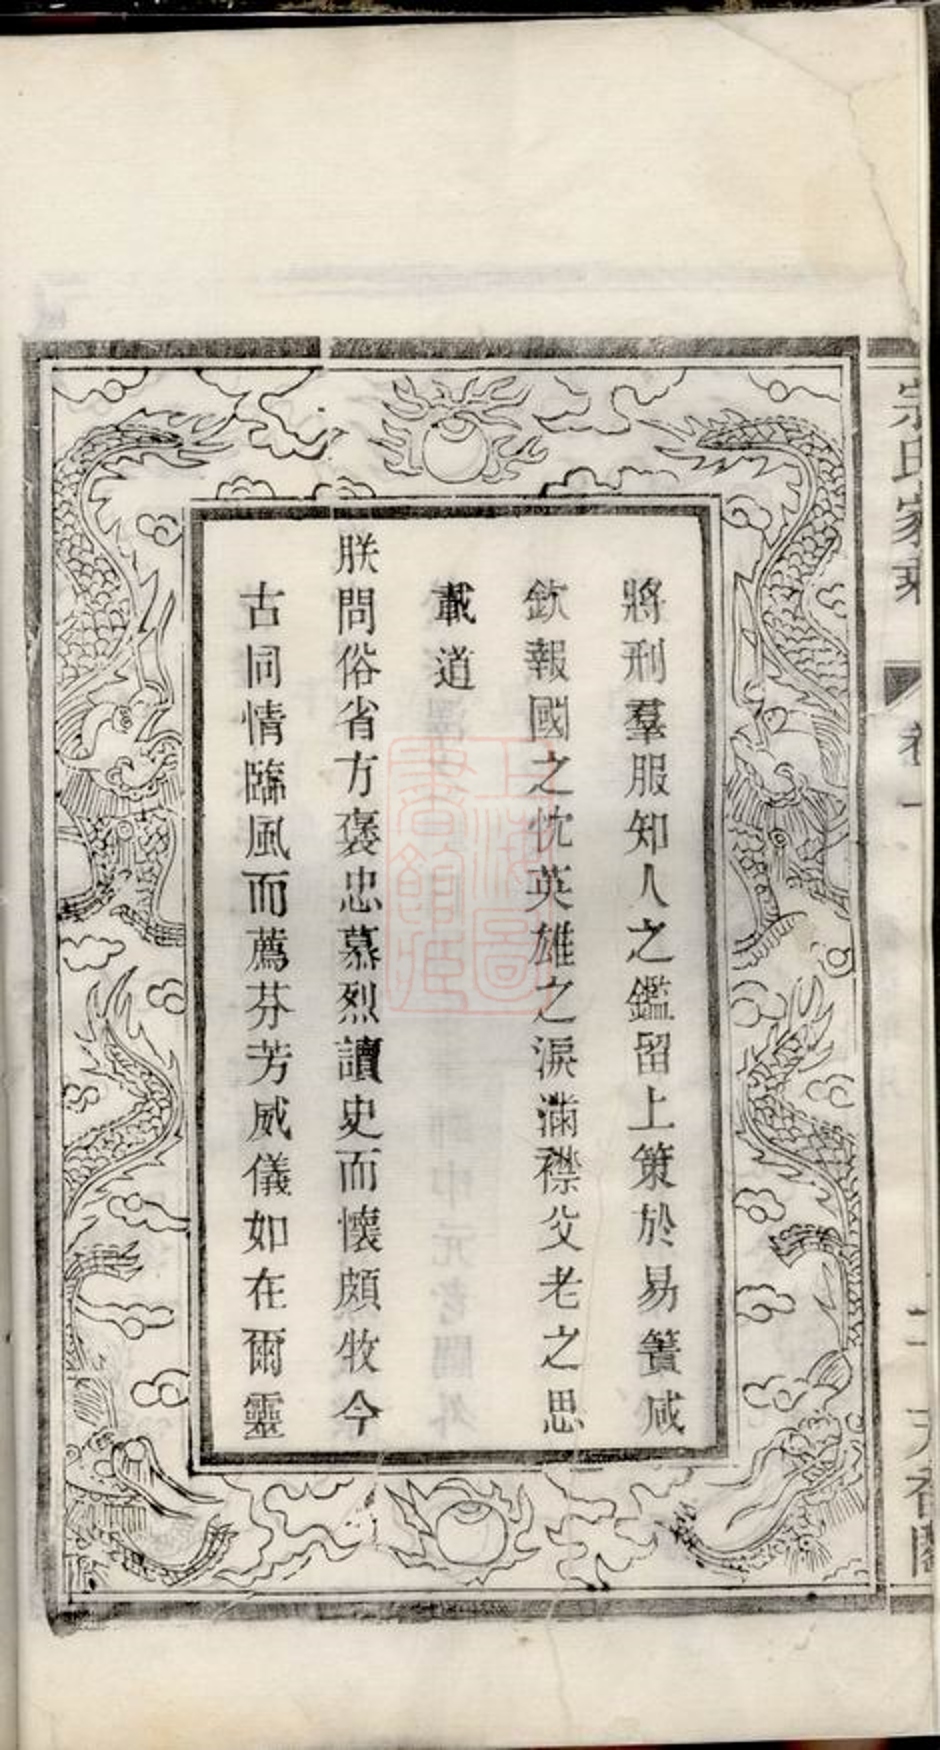 宗氏家乘
卷一
二
天香閣
將刑羣服知人之鑑留上策於易簀咸
欽報國之忱英雄之淚滿襟父老之思
載道
朕問俗省方褒忠慕烈讀史而懷頗牧今
古同情臨風而薦芬芳威儀如在爾靈
上海圖
書館藏